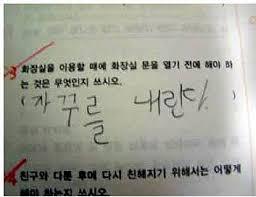 화장실을 이용할 때에 화장실 문을 열기 전에 해야 하
는 것은 무엇인지 쓰시오.
( 자꾸를 내린다.
친구와 다툰 후에 다시 친해지기 위해서는 어떻게
해야 하는지 쓰시오